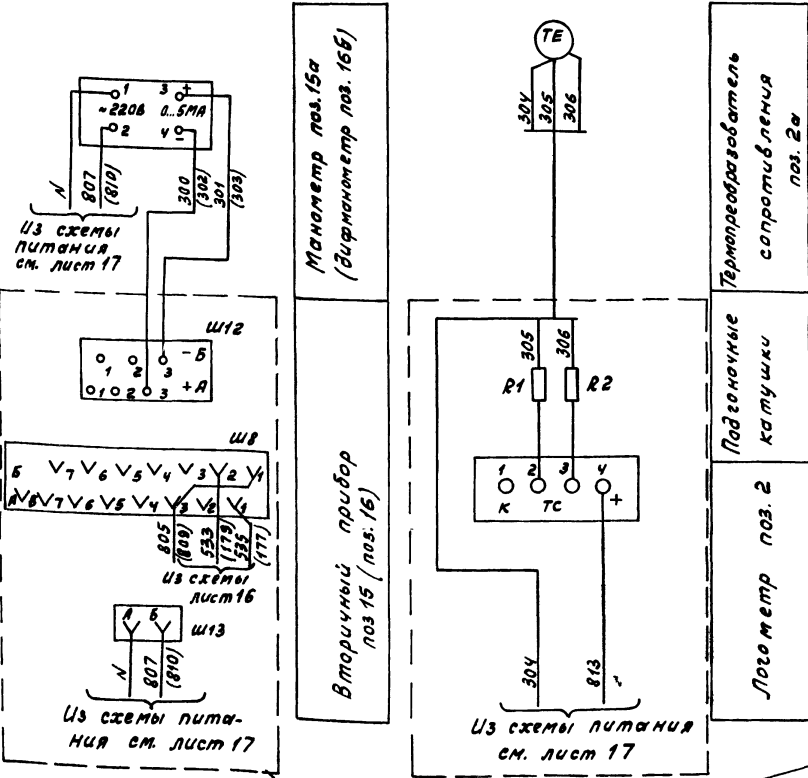 1 3 +
~220В 0...5МА
2 4 -
N
807
(810)
300
(302)
301
(303)
Из схемы
питания
см. лист 17
Манометр поз. 15а
(дифманометр поз. 16б)
Ш12
1 2 3 -Б
1 2 3 +А
Ш8
Б 7 6 5 4 3 2 1
А 8 7 6 5 4 3 2 1
805
(808)
533
(179)
535
(177)
Из схемы
лист 16
А Б
Ш13
N
807
(810)
Из схемы пита-
ния см. лист 17
Вторичный прибор
поз 15 (поз. 16)
TE
304
305
306
305
306
R1
R2
1 2 3 4
К ТС +
304
813
Из схемы питания
см. лист 17
Термопреобразователь
сопротивления
поз. 2а
Подгоночные
катушки
Логометр поз. 2